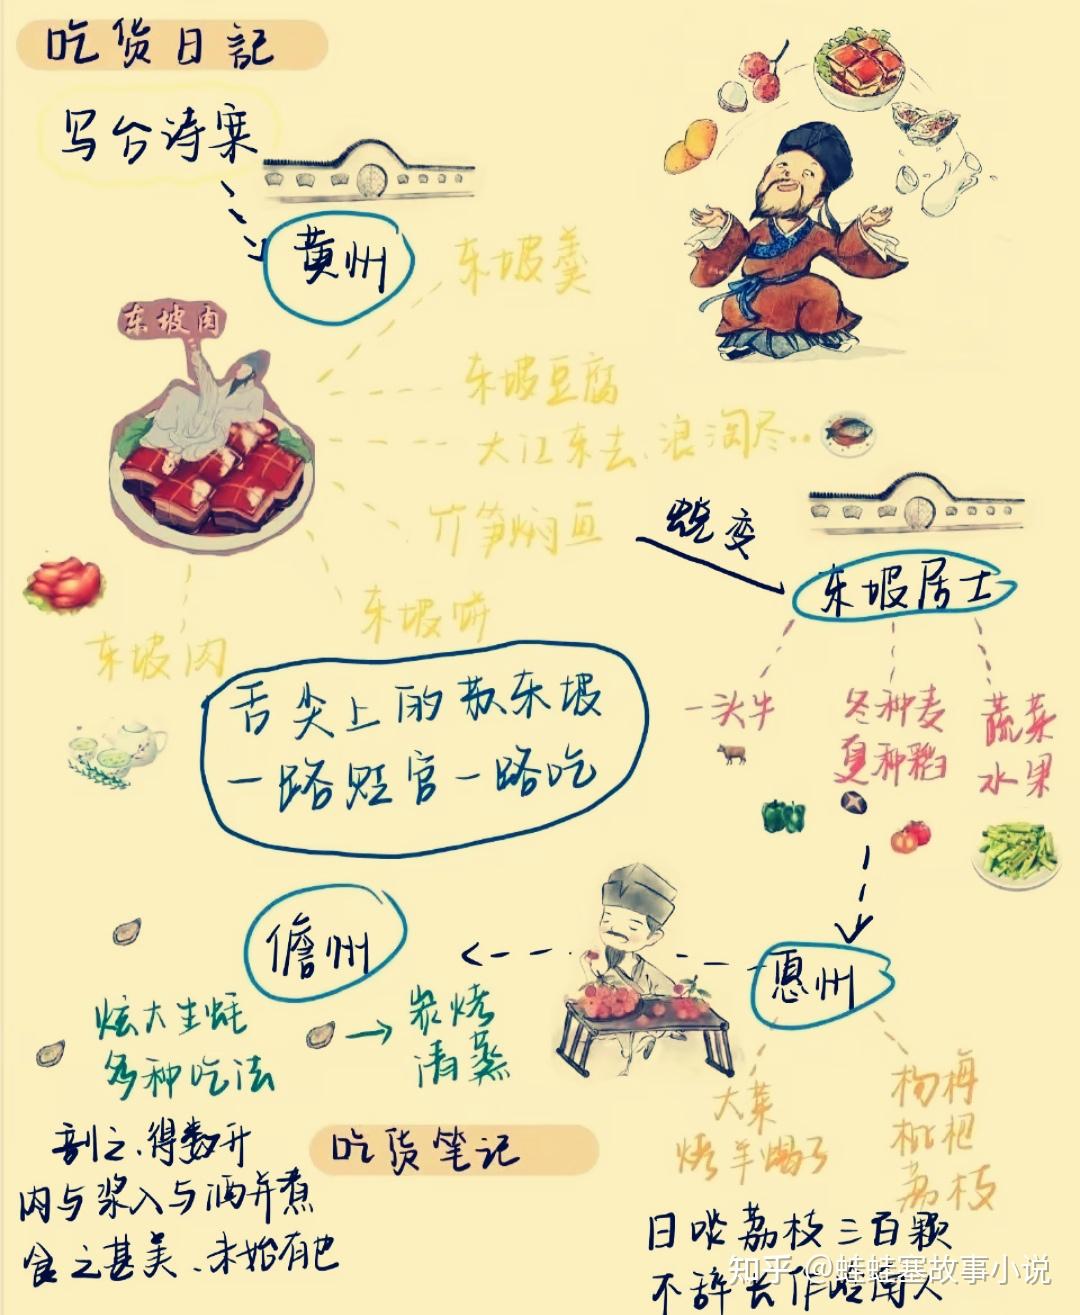 吃货日記
写台诗案
黄州
东坡肉
东坡羹
东坡豆腐
大江东去、浪淘尽..
竹笋焖鱼
东坡饼
东坡肉
蜕变
东坡居士
一头牛
冬种麦
夏种稻
蔬菜
水果
舌尖上的苏东坡
一路贬官一路吃
惠州
儋州
炫大生蚝
多种吃法
炭烤
清蒸
大菜
烤羊蝎子
杨梅
枇杷
荔枝
吃货笔记
剖之、得数升
肉与浆入与酒并煮
食之甚美、未始有也
日啖荔枝三百颗
不辞长作岭南人
知乎 @蛙蛙塞故事小说